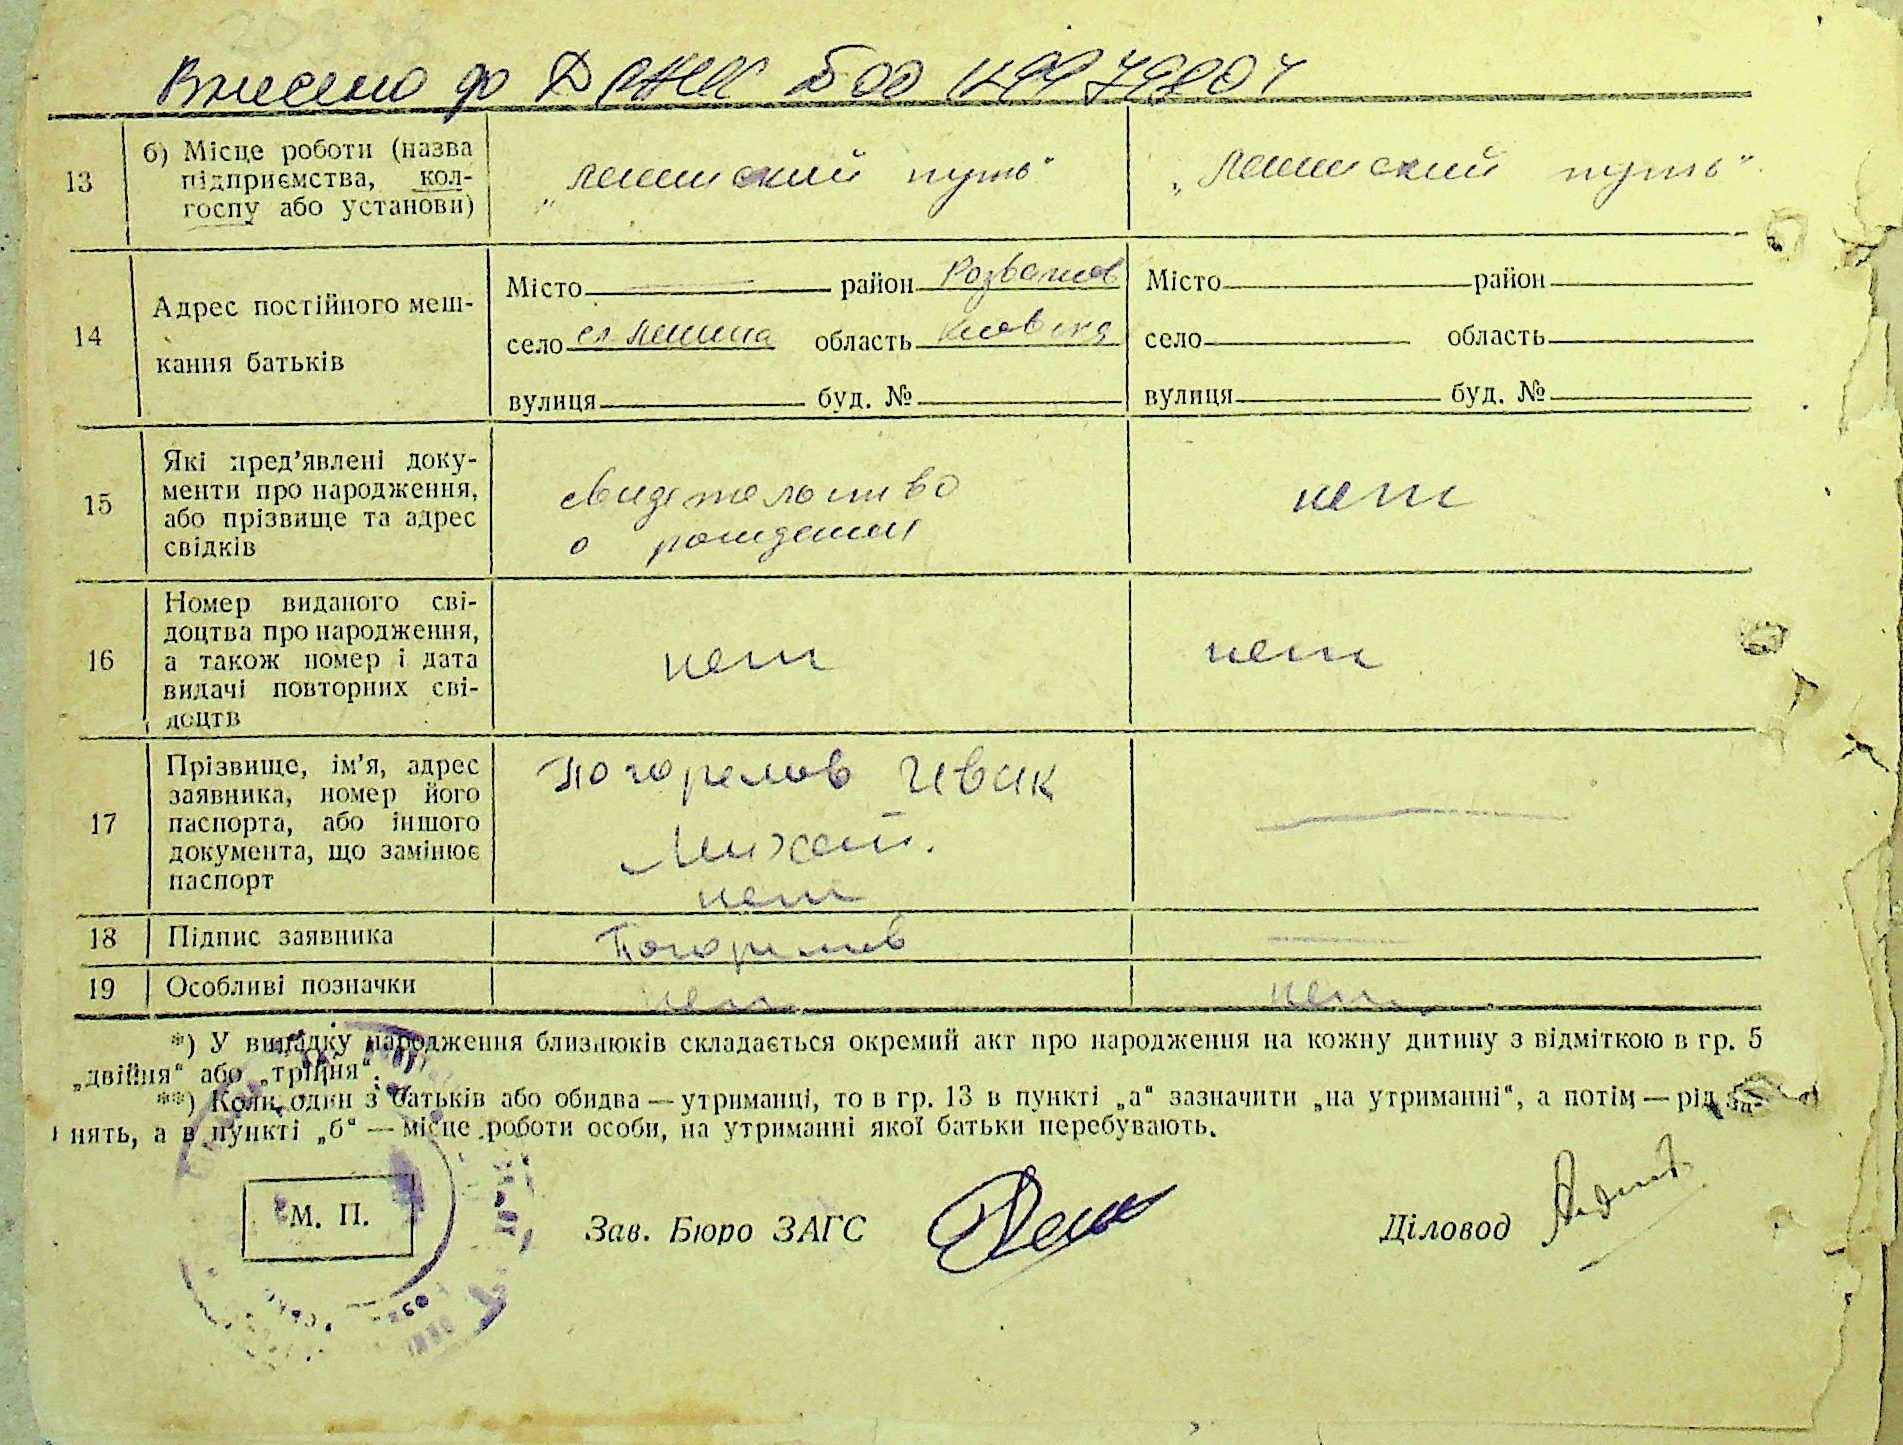 Внесено до ДРАЦС
13
б) Місце роботи (назва
підприємства, кол-
госпу або установи)
„Ленинский путь"
„Ленинский путь"
14
Адрес постійного меш-
кання батьків
Місто район Розважов
село ст. Ленина область Киевская
вулиця буд. №
Місто район
село область
вулиця буд. №
15
Які пред'явлені доку-
менти про народження,
або прізвище та адрес
свідків
свидетельство
о рождении
нет
16
Номер виданого сві-
доцтва про народження,
а також номер і дата
видачі повторних сві-
доцтв
нет
нет
17
Прізвище, ім'я, адрес
заявника, номер його
паспорта, або іншого
документа, що замінює
паспорт
Погорелов Иван
Михай.
нет
18
Підпис заявника
Погорелов
19
Особливі позначки
нет
нет
*) У випадку народження близнюків складається окремий акт про народження на кожну дитину з відміткою в гр. 5
„двійня“ або „трійня“.
**) Коли один з батьків або обидва — утриманці, то в гр. 13 в пункті „а“ зазначити „на утриманні“, а потім — рід за-
нять, а в пункті „б“ — місце роботи особи, на утриманні якої батьки перебувають.
М. П.
Зав. Бюро ЗАГС
Діловод